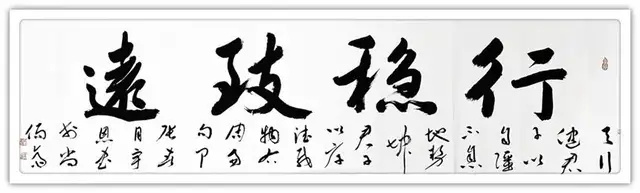 行稳致遠
天行
健君
子以
自彊
不息
地势
坤
君子
以厚
德载
物
周易
句